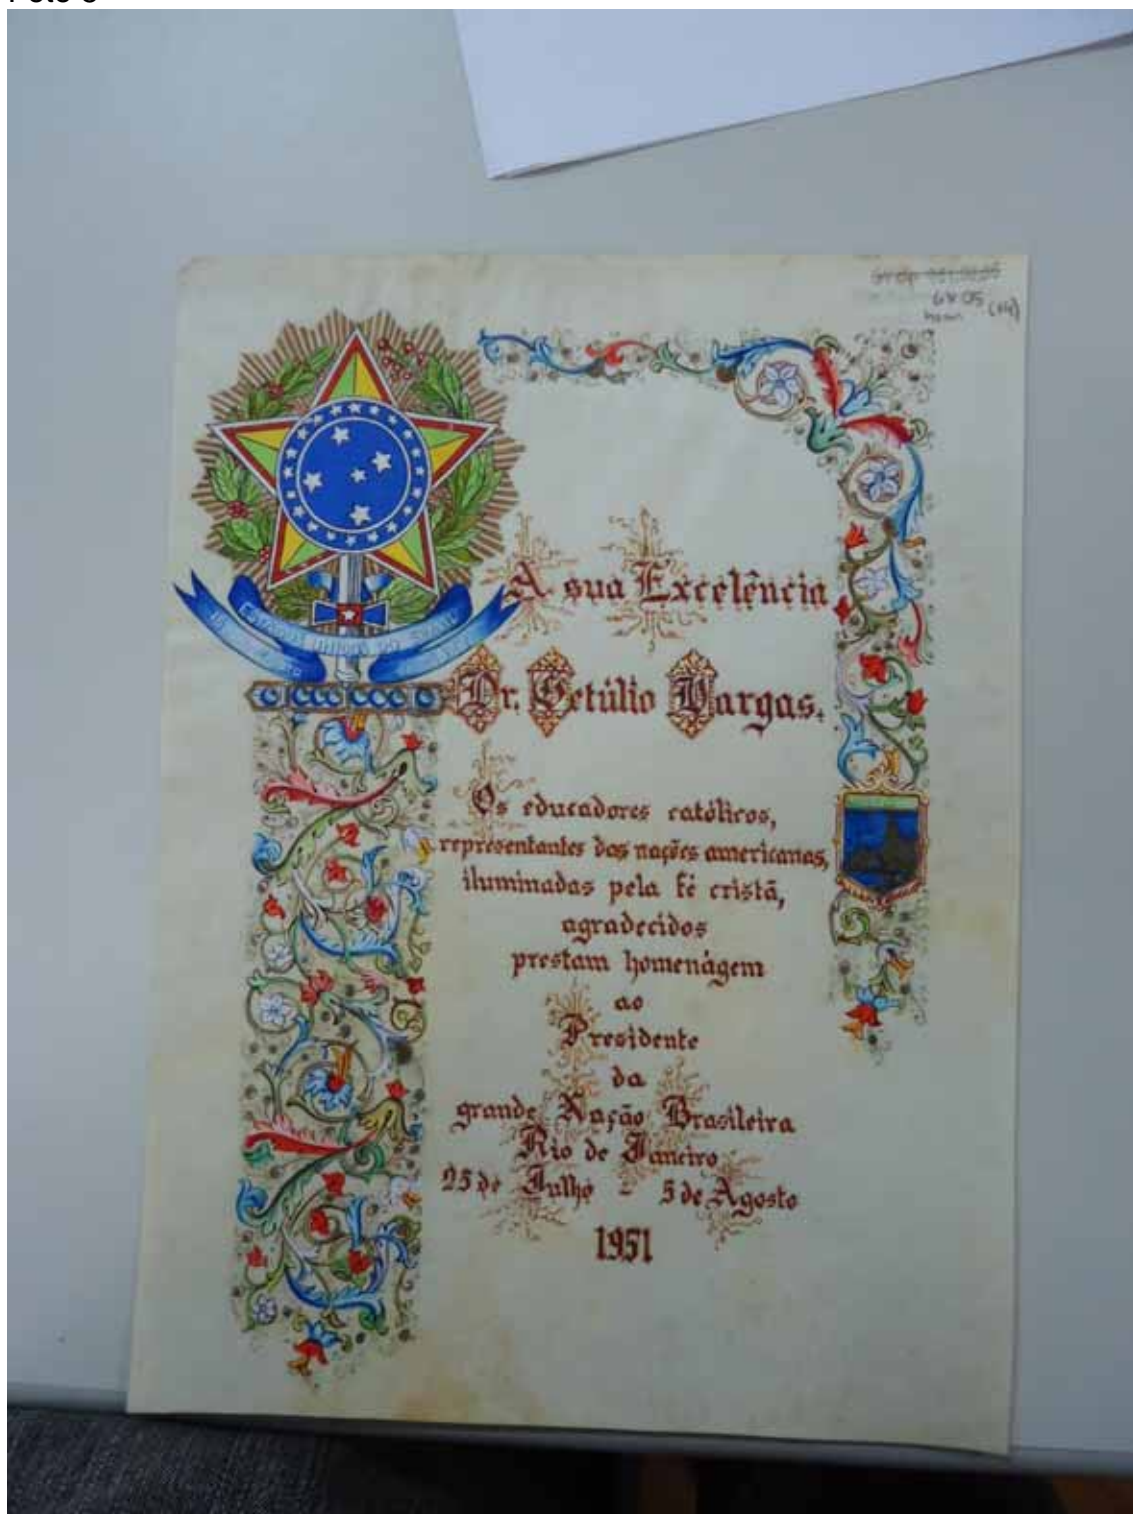 GV 05
A sua Excelência
ESTADOS UNIDOS DO BRASIL
Dr. Getúlio Vargas.
Os educadores católicos,
representantes das nações americanas,
iluminadas pela fé cristã,
agradecidos
prestam homenágem
ao
Presidente
da
grande Nação Brasileira
Rio de Janeiro
25 de Julho - 5 de Agosto
1951